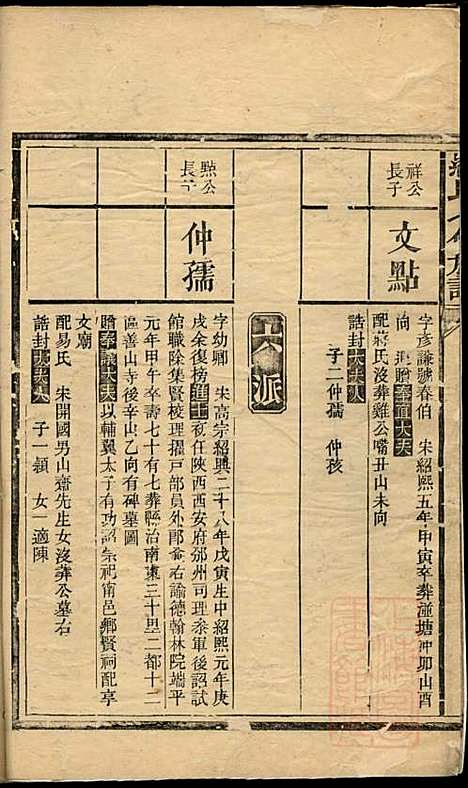 祥公
長子
文點
字彦謙號春伯　宋紹熙五年甲寅卒葬澁塘冲卯山酉
向　誥贈奉直大夫
配蔣氏沒葬雞公嘴丑山未向
誥封大夫人
子二仲孺　仲孩
六派
㸃公
長子
仲孺
字幼卿　宋高宗紹興二十八年戊寅生中紹熙元年庚
戌余復榜進士初任陝西西安府邠州司理叅軍後詔試
館職除集賢校理擢戸部員外郎兼右諭德翰林院端平
元年甲午卒壽七十有七葬縣治南東三十里二都十二
區善山寺後辛山乙向有碑墓圖
贈奉議大夫以輔翼太子有功詔崇祀南邑鄉賢祠配享
文廟
配易氏　宋開國男山齋先生女沒葬公墓右
誥封大夫人　子一穎　女一適陳